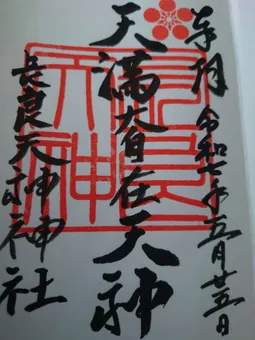 皐月 令和七年五月廿五日
天満大自在天神
長良天神神社
長良
天神